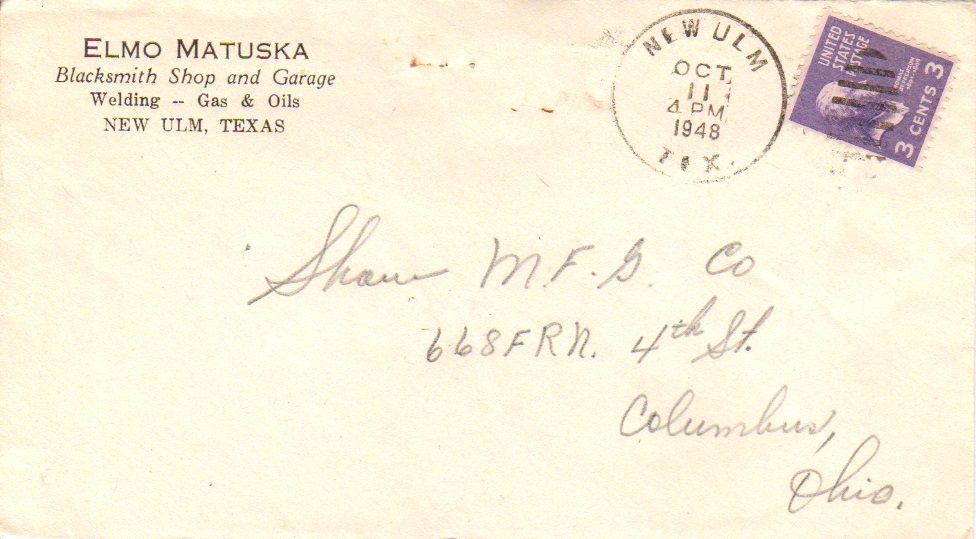 ELMO MATUSKA
Blacksmith Shop and Garage
Welding -- Gas & Oils
NEW ULM, TEXAS
NEW ULM
OCT
11
4 PM
1948
TEX.
UNITED
STATES
POSTAGE
3 CENTS 3
Shaw M.F.G. Co
668FRN. 4th St.
Columbus,
Ohio.